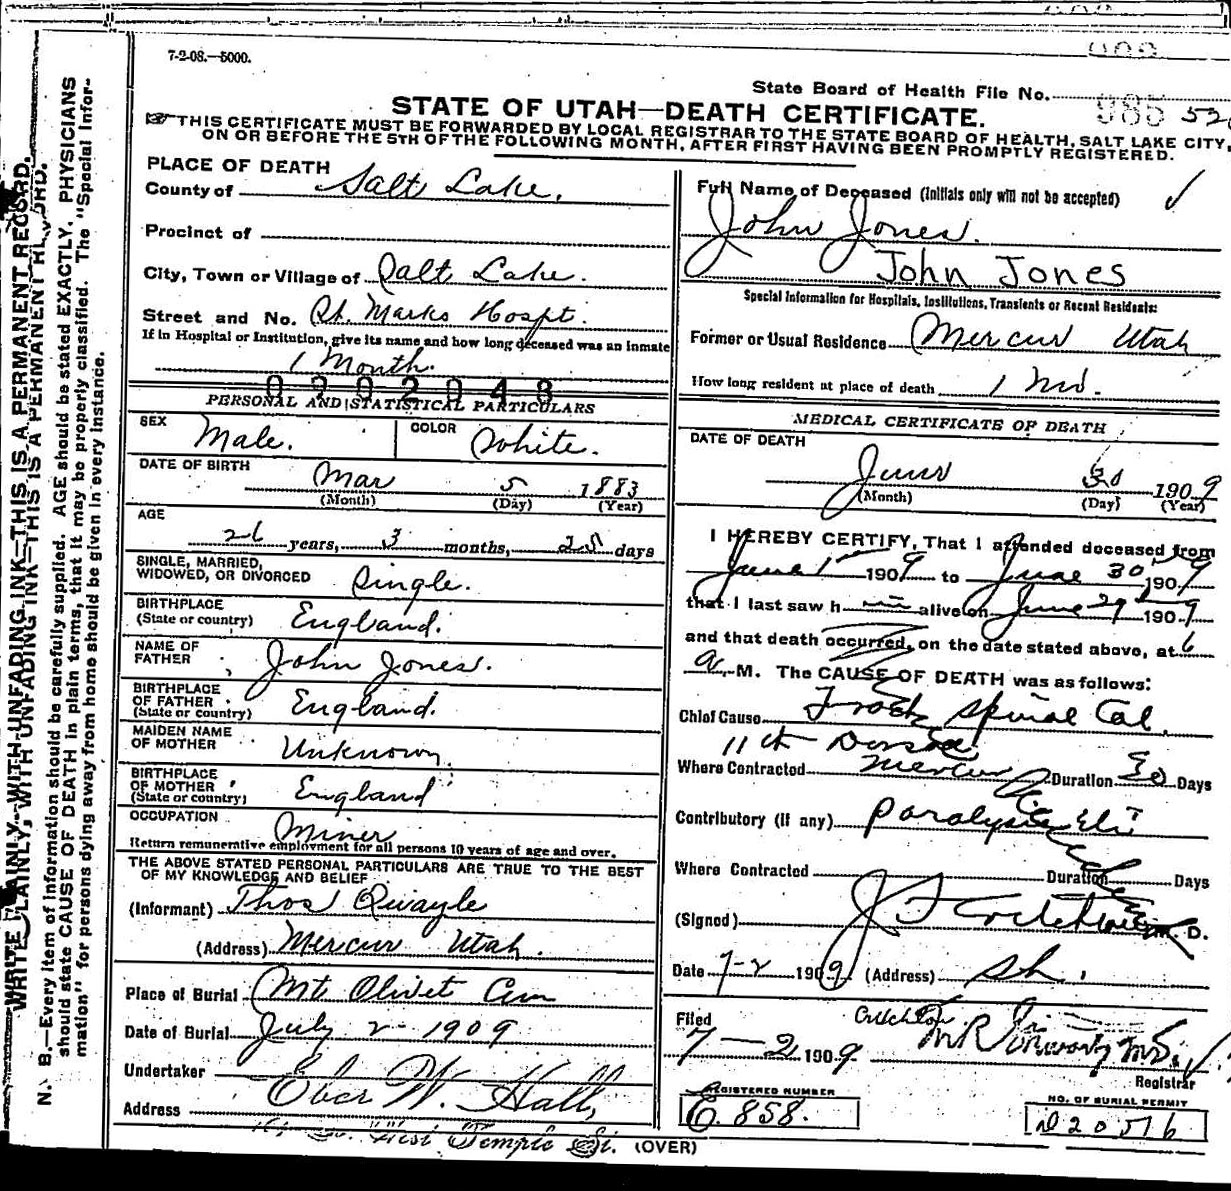 7-2-08.—5000.
State Board of Health File No. 985 52
STATE OF UTAH—DEATH CERTIFICATE.
THIS CERTIFICATE MUST BE FORWARDED BY LOCAL REGISTRAR TO THE STATE BOARD OF HEALTH, SALT LAKE CITY,
ON OR BEFORE THE 5TH OF THE FOLLOWING MONTH, AFTER FIRST HAVING BEEN PROMPTLY REGISTERED.
WRITE PLAINLY, WITH UNFADING INK—THIS IS A PERMANENT RECORD.
N. B.—Every item of information should be carefully supplied. AGE should be stated EXACTLY. PHYSICIANS
should state CAUSE OF DEATH in plain terms, that it may be properly classified. The "Special Infor-
mation" for persons dying away from home should be given in every instance.
PLACE OF DEATH
County of Salt Lake.
Precinct of
City, Town or Village of Salt Lake.
Street and No. St. Marks Hospt.
If in Hospital or Institution, give its name and how long deceased was an inmate
1 Month.
0202048
PERSONAL AND STATISTICAL PARTICULARS
SEX Male. COLOR White.
DATE OF BIRTH Mar 5 1883
(Month) (Day) (Year)
AGE
26 years, 3 months, 25 days
SINGLE, MARRIED,
WIDOWED, OR DIVORCED Single.
BIRTHPLACE
(State or country) England.
NAME OF
FATHER John Jones.
BIRTHPLACE
OF FATHER
(State or country) England.
MAIDEN NAME
OF MOTHER Unknown.
BIRTHPLACE
OF MOTHER
(State or country) England
OCCUPATION Miner
Return remunerative employment for all persons 10 years of age and over.
THE ABOVE STATED PERSONAL PARTICULARS ARE TRUE TO THE BEST
OF MY KNOWLEDGE AND BELIEF
(Informant) Thos Quayle
(Address) Mercur Utah.
Place of Burial Mt Olivet Cem
Date of Burial July 2 - 1909
Undertaker Eber W. Hall,
Address West Temple St.
Full Name of Deceased (Initials only will not be accepted)
John Jones.
John Jones
Special Information for Hospitals, Institutions, Transients or Recent Residents:
Former or Usual Residence Mercur Utah
How long resident at place of death 1 Mo.
MEDICAL CERTIFICATE OF DEATH
DATE OF DEATH
June 30 1909
(Month) (Day) (Year)
I HEREBY CERTIFY, That I attended deceased from
June 1st 1909 to June 30th 1909
that I last saw h im alive on June 29th 1909
and that death occurred, on the date stated above, at 6
a. M. The CAUSE OF DEATH was as follows:
Chief Cause Spinal Col
11th Dorsal
Where Contracted Mercur Duration 30 Days
Contributory (if any) paralysis
Where Contracted Duration Days
(Signed) M. D.
Date 7-2 1909 (Address) SL.
Critchlow
Filed
7 — 2 1909
Registrar
REGISTERED NUMBER
C. 858.
NO. OF BURIAL PERMIT
D20516
(OVER)